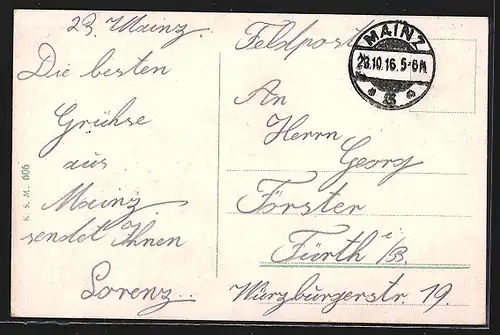 23. Mainz.
Die besten
Grühse
aus
Mainz
sendet Ihnen
Lorenz..
K. S. M. 606
Feldpost
MAINZ
23.10.16.5-6N.
* 5 *
An
Herrn
Georg
Förster
Fürth i/B.
Würzburgerstr. 19.